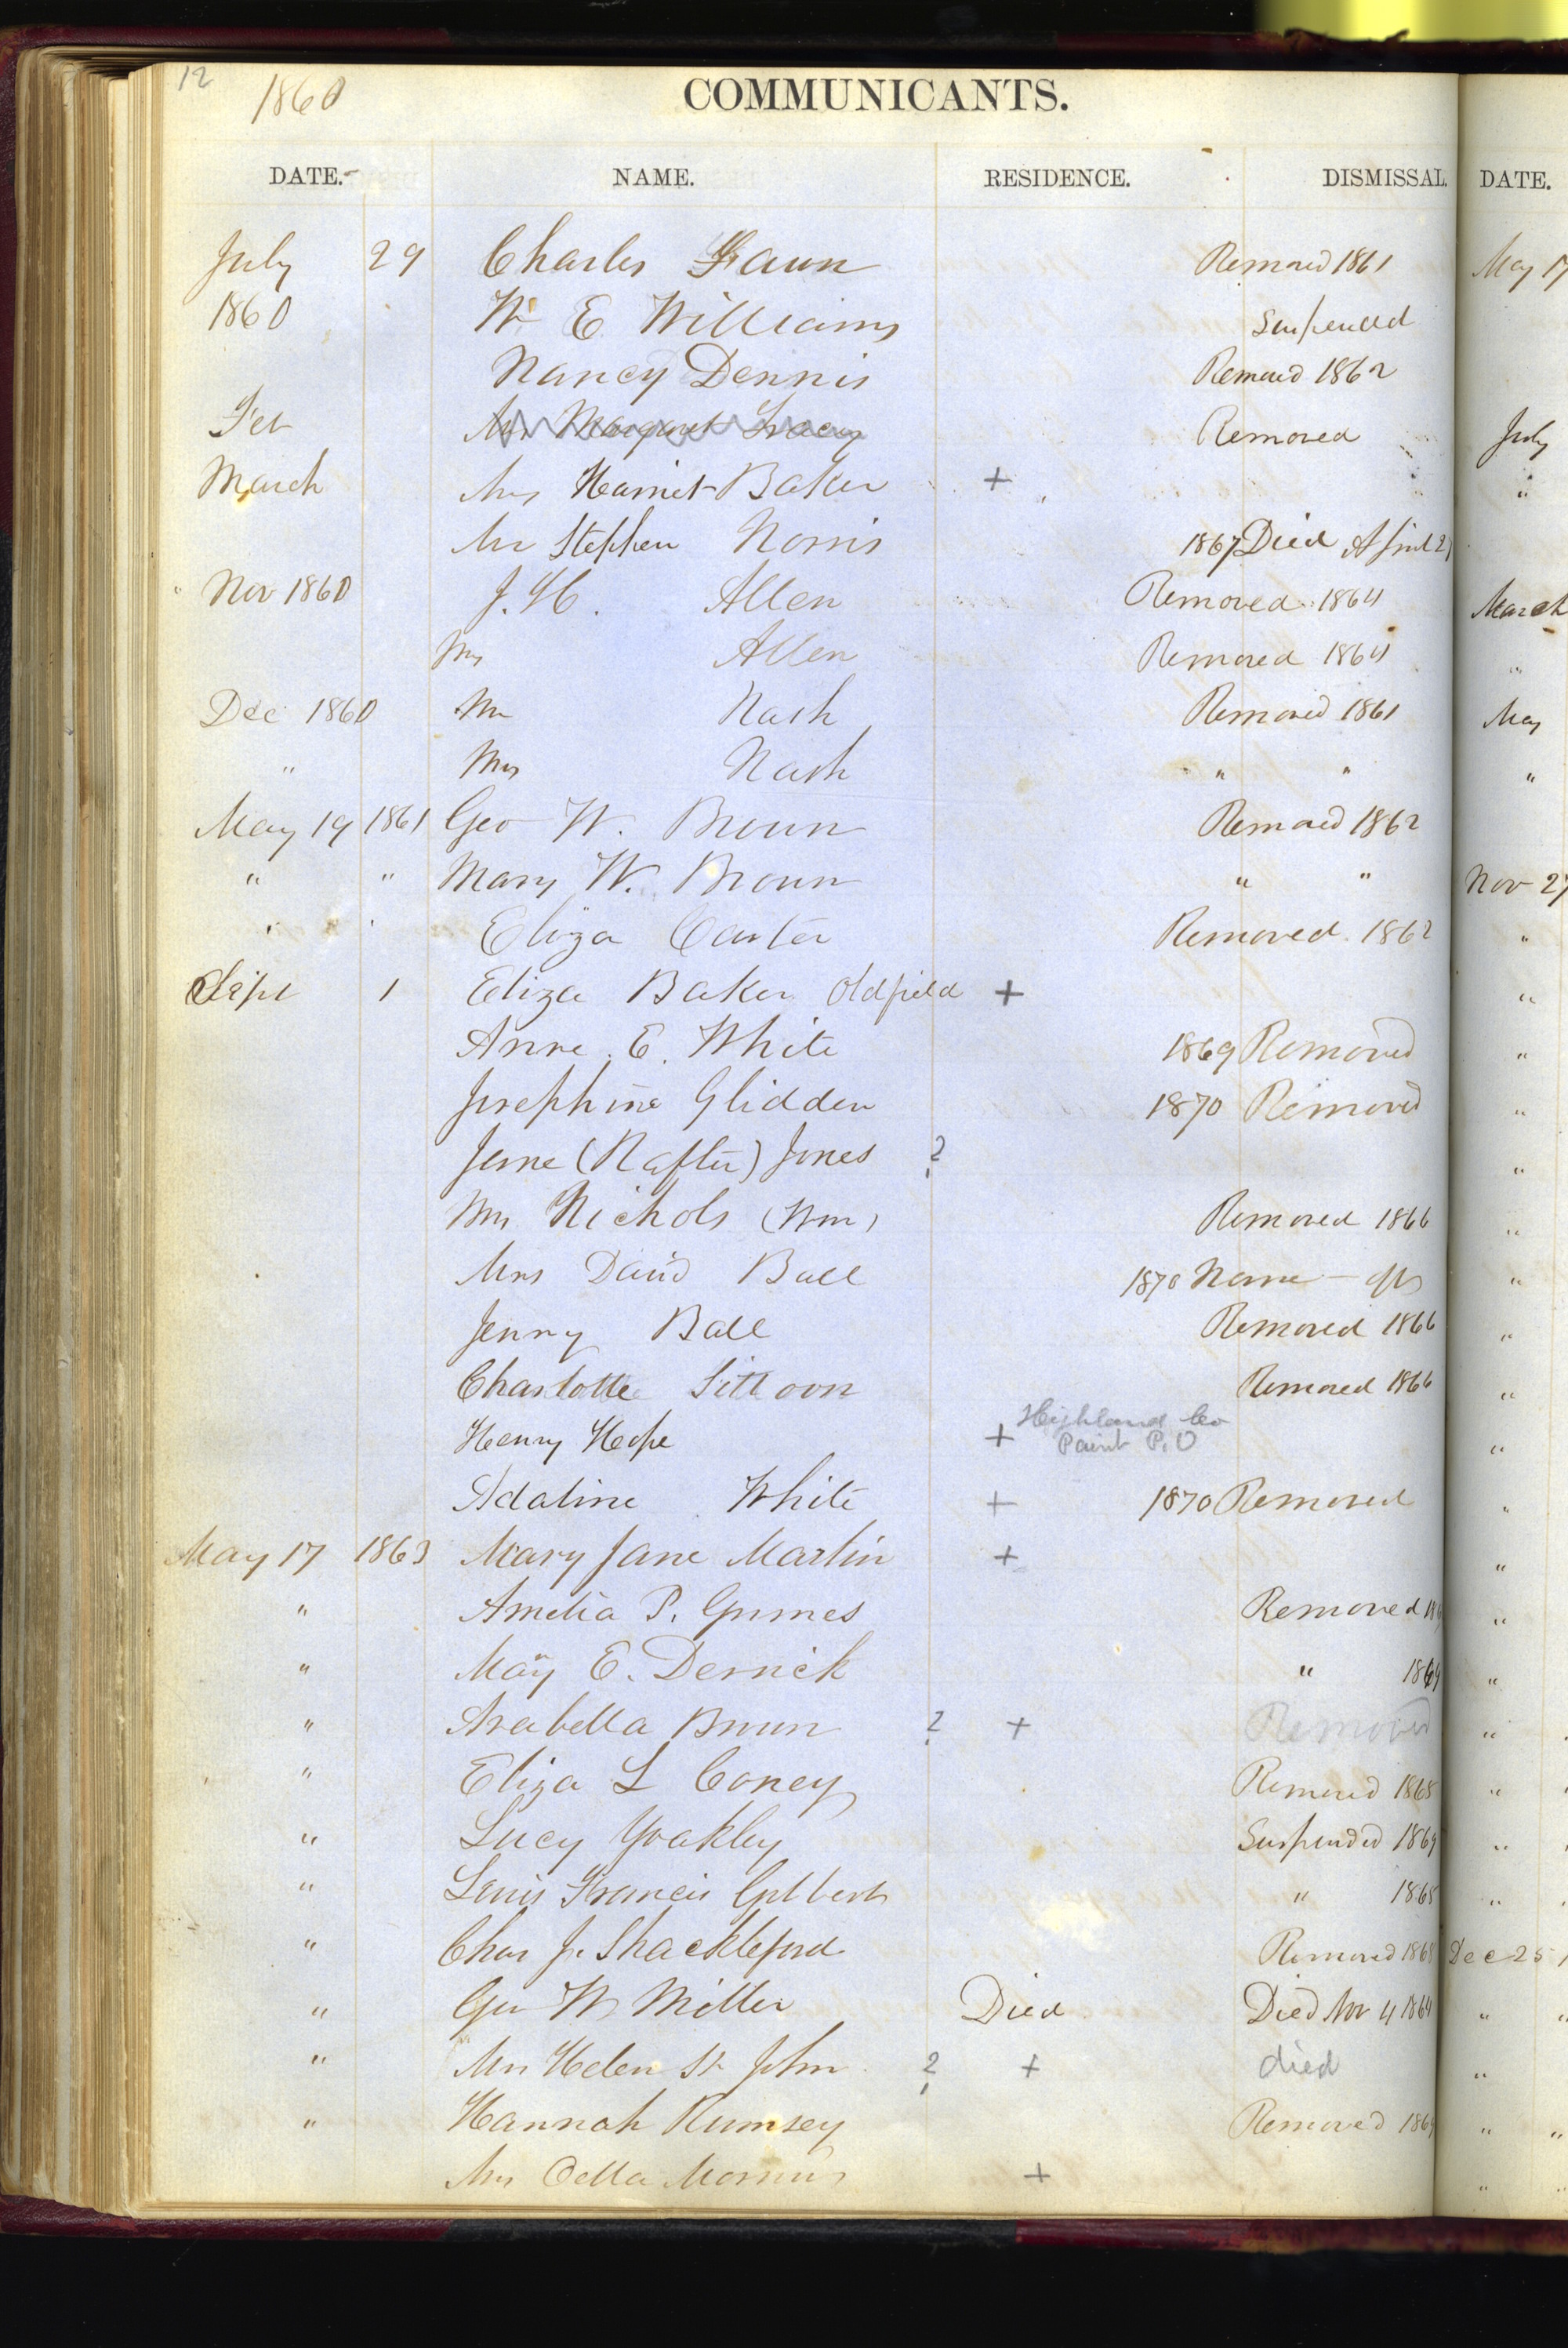 12 1860 COMMUNICANTS.
DATE. NAME. RESIDENCE. DISMISSAL. DATE.
July 29 Charles Removed 1861 May 17
1860 Wm E Williams Suspended
Nancy Dennis Removed 1862
Feb Mrs Margaret Tracy Removed July
March Mrs Harriet Baker + "
Mr Stephen Norris 1867 Died April 2
" Nov 1860 J. H. Allen Removed 1864 March
Mrs Allen Removed 1864 "
Dec 1860 Mr Nash Removed 1861 May
" Mrs Nash " " "
May 19 1861 Geo W. Brown Removed 1862
" " Mary W. Brown " " Nov 27
" " Eliza Carter Removed 1862 "
Sept 1 Eliza Baker Oldfield + "
Anne E. White 1869 Removed "
Josephine Glidden 1870 Removed "
Jane (Rafter) Jones ? "
Mrs Nichols (Wm) Removed 1866 "
Mrs David Ball 1870 Name "
Jenny Ball Removed 1866 "
Charlotte Sittoon Removed 1866 "
Henry Hope + Highland Co "
Paint P.O
Adaline White + 1870 Removed "
May 17 1863 Mary Jane Martin + "
" Amelia P. Grimes Removed "
" May E. Derrick " 1869 "
" Arabella Brown ? + Removed "
" Eliza L Coney Removed 1868 "
" Lucy Yoakley Suspended 1869 "
" Louis Francis Gilbert " 1868 "
" Chas J. Shackleford Removed 1868 Dec 25
" Geo W Miller Died Died Nov 4 1864 "
" Mrs Helen St John ? + died "
" Hannah Rumsey Removed 1869 " "
Mrs Morris + "